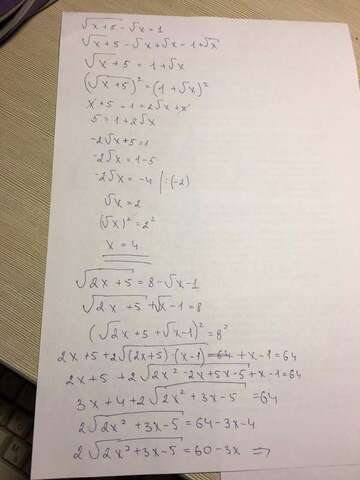 √x+5 - √x = 1
√x+5 - √x + √x = 1 + √x
√x+5 = 1 + √x
(√x+5)² = (1 + √x)²
x + 5 = 1 + 2√x + x
5 = 1 + 2√x
-2√x + 5 = 1
-2√x = 1 - 5
-2√x = -4 / : (-2)
√x = 2
(√x)² = 2²
x = 4
√2x + 5 = 8 - √x - 1
√2x + 5 + √x - 1 = 8
(√2x + 5 + √x - 1)² = 8²
2x + 5 + 2√(2x+5)·(x-1) = 64 + x - 1 = 64
2x + 5 + 2√2x² - 2x + 5x - 5 + x - 1 = 64
3x + 4 + 2√2x² + 3x - 5 = 64
2√2x² + 3x - 5 = 64 - 3x - 4
2√2x² + 3x - 5 = 60 - 3x =>